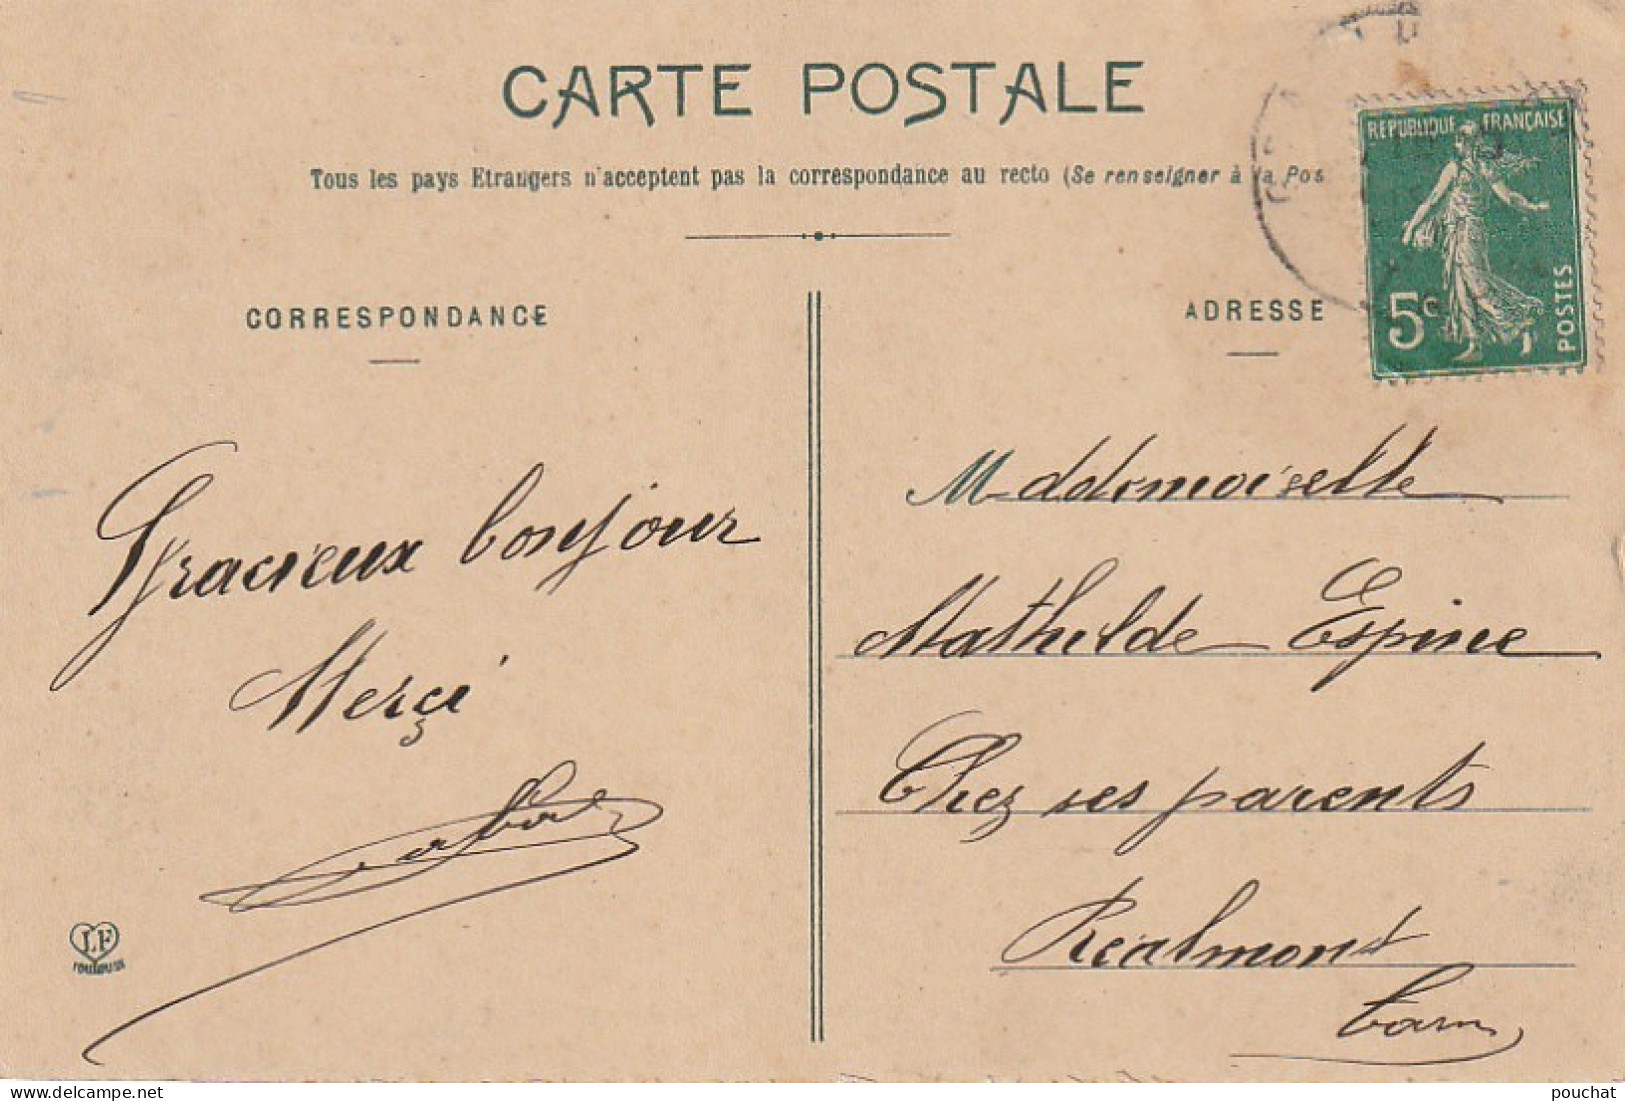 CARTE POSTALE
Tous les pays Etrangers n'acceptent pas la correspondance au recto (Se renseigner à la Pos
CORRESPONDANCE
Gracieux bonjour
Merçi
LF
TOULOUSE
REPUBLIQUE FRANÇAISE
5c
POSTES
ADRESSE
Maddemoiselle
Mathilde Espine
Chez ses parents
Réalmont
Tarn
pouchat